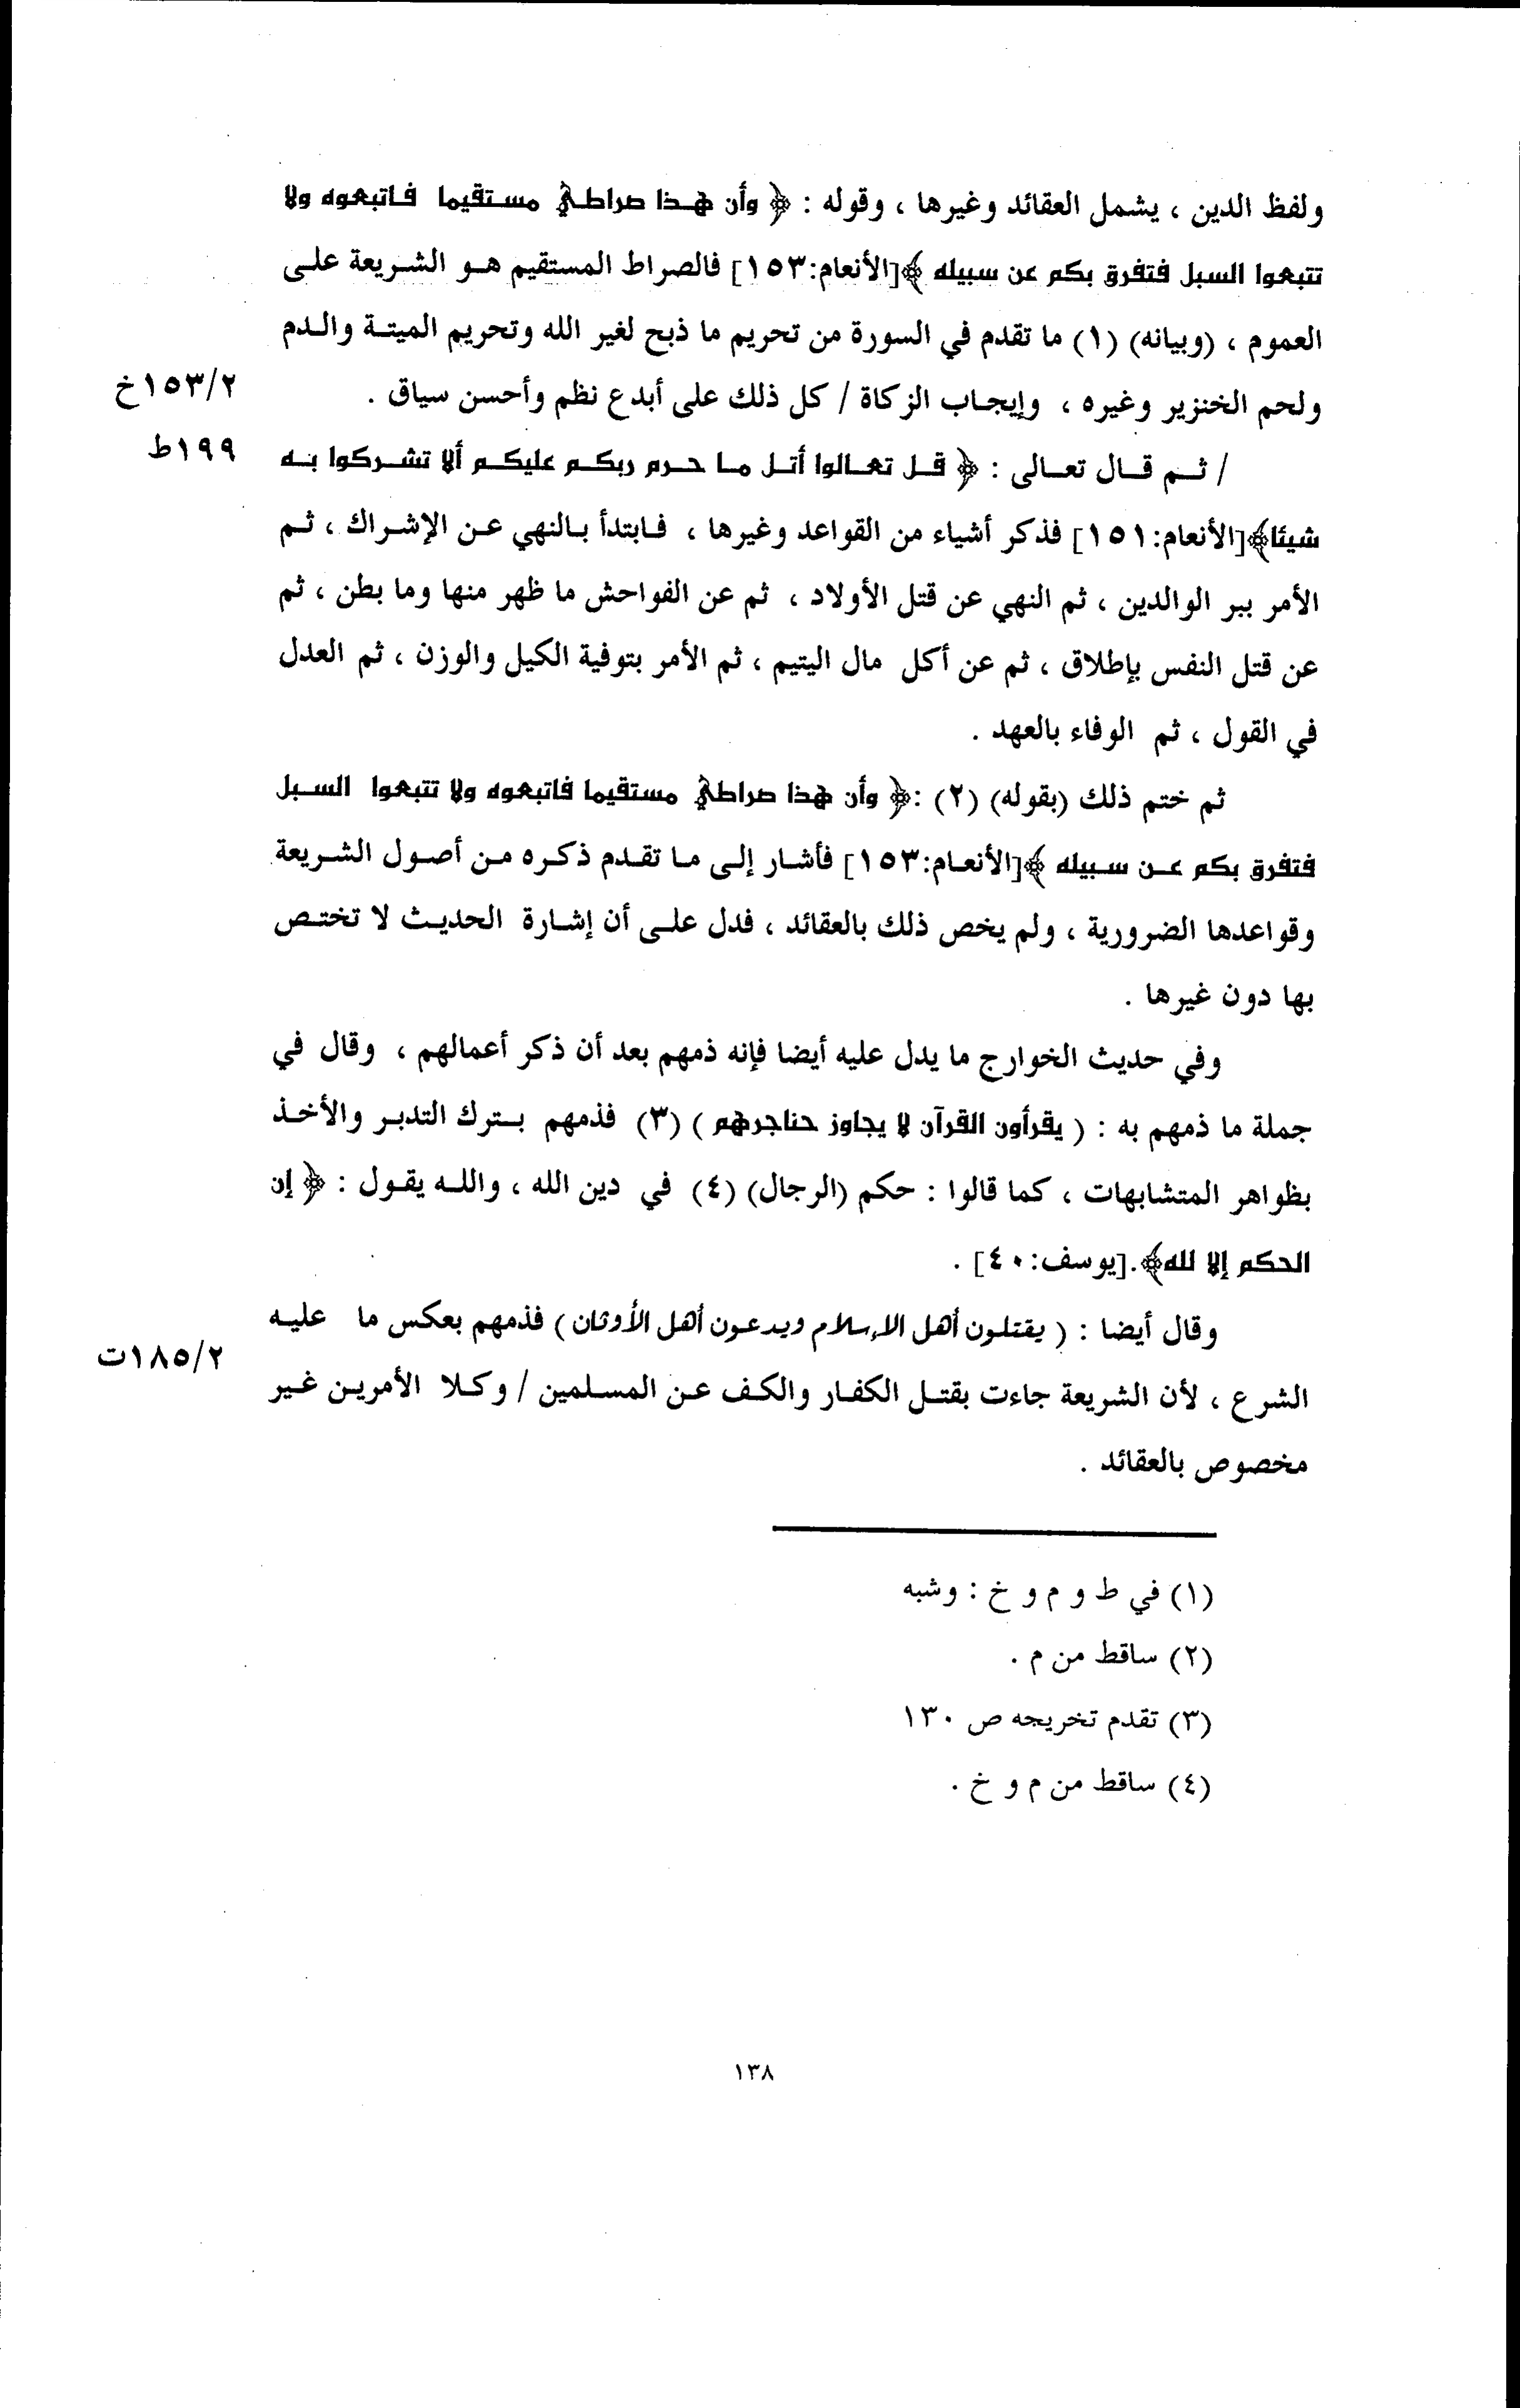 ولفظ الدين ، يشمل العقائد وغيرها ، وقوله : ﴿ وأن هذا صراطي مستقيما فاتبعوه ولا
تتبعوا السبل فتفرق بكم عن سبيله ﴾[الأنعام:١٥٣] فالصراط المستقيم هو الشريعة على
العموم ، (وبيانه) (١) ما تقدم في السورة من تحريم ما ذبح لغير الله وتحريم الميتة والدم
ولحم الخنزير وغيره ، وإيجاب الزكاة / كل ذلك على أبدع نظم وأحسن سياق .
١٥٣/٢خ
/ ثم قال تعالى : ﴿ قل تعالوا أتل ما حرم ربكم عليكم ألا تشركوا به
١٩٩ط
شيئا﴾[الأنعام:١٥١] فذكر أشياء من القواعد وغيرها ، فابتدأ بالنهي عن الإشراك ، ثم
الأمر ببر الوالدين ، ثم النهي عن قتل الأولاد ، ثم عن الفواحش ما ظهر منها وما بطن ، ثم
عن قتل النفس بإطلاق ، ثم عن أكل مال اليتيم ، ثم الأمر بتوفية الكيل والوزن ، ثم العدل
في القول ، ثم الوفاء بالعهد .
ثم ختم ذلك (بقوله) (٢) :﴿ وأن هذا صراطي مستقيما فاتبعوه ولا تتبعوا السبل
فتفرق بكم عن سبيله ﴾[الأنعام:١٥٣] فأشار إلى ما تقدم ذكره من أصول الشريعة
وقواعدها الضرورية ، ولم يخص ذلك بالعقائد ، فدل على أن إشارة الحديث لا تختص
بها دون غيرها .
وفي حديث الخوارج ما يدل عليه أيضا فإنه ذمهم بعد أن ذكر أعمالهم ، وقال في
جملة ما ذمهم به : ( يقرأون القرآن لا يجاوز حناجرهم ) (٣) فذمهم بترك التدبر والأخذ
بظواهر المتشابهات ، كما قالوا : حكم (الرجال) (٤) في دين الله ، والله يقول : ﴿ إن
الحكم إلا لله﴾.[يوسف:٤٠] .
وقال أيضا : ( يقتلون أهل الإسلام ويدعون أهل الأوثان ) فذمهم بعكس ما عليه
الشرع ، لأن الشريعة جاءت بقتل الكفار والكف عن المسلمين / وكلا الأمرين غير
١٨٥/٢ت
مخصوص بالعقائد .
(١) في ط و م و خ : وشبه
(٢) ساقط من م .
(٣) تقدم تخريجه ص ١٣٠
(٤) ساقط من م و خ .
١٣٨